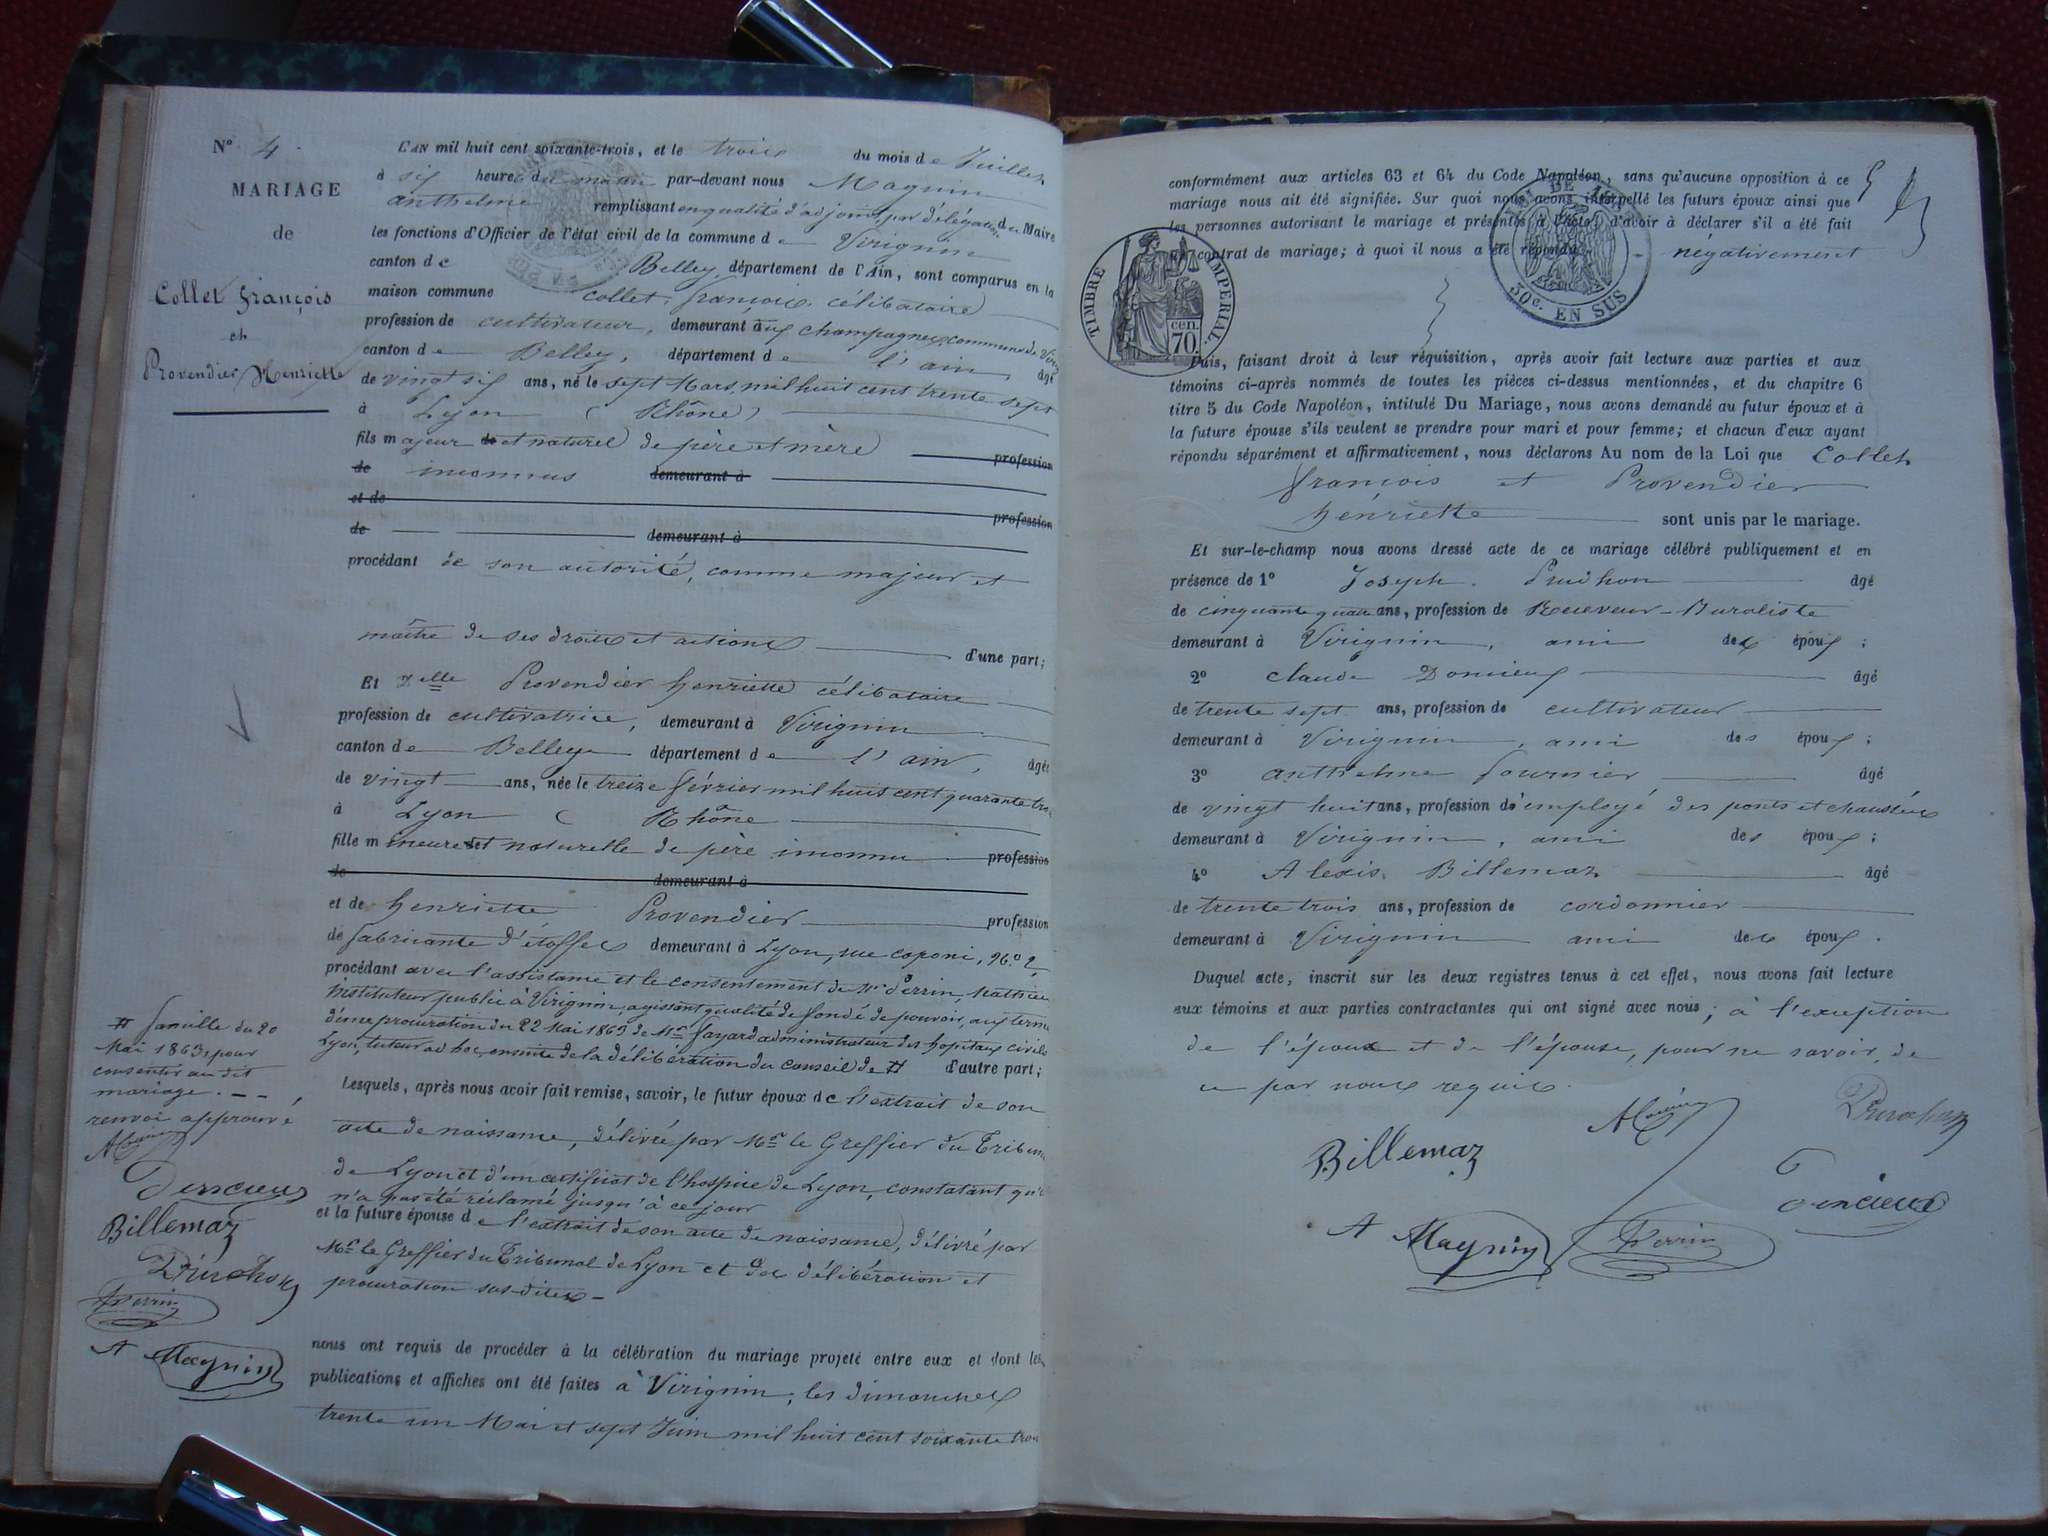 N° 4
MARIAGE
de
Collet François
et
Provendier Henriette
L'AN mil huit cent soixante-trois, et le trois du mois de Juillet
à six heures du matin par-devant nous Magnin
anthelme remplissant en qualité d'adjoint, par délégation du Maire
les fonctions d'Officier de l'état civil de la commune de Virignin
canton de Belley, département de l'Ain, sont comparus en la
maison commune Collet, françois, célibataire
profession de cultivateur, demeurant aux champagnes, commune de
canton de Belley, département de l'ain, âgé
de vingt six ans, né le sept Mars, mil huit cent trente sept
à Lyon (Rhône)
fils majeur de et naturel de père et mère profession
de inconnus demeurant à
et de profession
de demeurant à
procédant de son autorité, comme majeur et
maître de ses droits et actions d'une part;
Et Delle Provendier henriette célibataire
profession de cultivatrice, demeurant à Virignin
canton de Belley département de l'ain, âgée
de vingt ans, née le treize février mil huit cent quarante trois
à Lyon (Rhône
fille mineure et naturelle de père inconnu profession
de demeurant à
et de henriette Provendier profession
de fabricante d'étoffes demeurant à Lyon, rue caponi, N° 2,
procédant avec l'assistance et le consentement de Mr Perrin,
instituteur public à Virignin, agissant qualité de fondé de pouvoir, aux termes
d'une procuration du 22 Mai 1863 de Mr fayard administrateur des hopitaux civils
Lyon, tuteur ad hoc, ensuite de la délibération du conseil de # d'autre part;
# famille du 20
Mai 1863, pour
consentir au dit
mariage. - -
renvoi approuvé
Billemaz
Prudhon
Perrin
A Magnin
Lesquels, après nous avoir fait remise, savoir, le futur époux de l'extrait de son
acte de naissance, délivré par Mr le Greffier du Tribunal
de Lyon et d'un certificat de l'hospice de Lyon, constatant qu'il
n'a pas été réclamé jusqu'à ce jour
et la future épouse de l'extrait de son acte de naissance, délivré par
Mr le Greffier du Tribunal de Lyon et des délibération et
procuration sus-dites -
nous ont requis de procéder à la célébration du mariage projeté entre eux et dont les
publications et affiches ont été faites à Virignin, les dimanches
trente un Mai et sept Juin mil huit cent soixante trois
conformément aux articles 63 et 64 du Code Napoléon, sans qu'aucune opposition à ce
mariage nous ait été signifiée. Sur quoi nous avons interpellé les futurs époux ainsi que
les personnes autorisant le mariage et présentes à l'acte, d'avoir à déclarer s'il a été fait
un contrat de mariage; à quoi il nous a été répondu négativement
TIMBRE IMPERIAL
70 cen.
50c. EN SUS
Puis, faisant droit à leur réquisition, après avoir fait lecture aux parties et aux
témoins ci-après nommés de toutes les pièces ci-dessus mentionnées, et du chapitre 6
titre 5 du Code Napoléon, intitulé Du Mariage, nous avons demandé au futur époux et à
la future épouse s'ils veulent se prendre pour mari et pour femme; et chacun d'eux ayant
répondu séparément et affirmativement, nous déclarons Au nom de la Loi que Collet
françois et Provendier
henriette sont unis par le mariage.
Et sur-le-champ nous avons dressé acte de ce mariage célébré publiquement et en
présence de 1° Joseph Prudhon âgé
de cinquante quatre ans, profession de Receveur-Buraliste
demeurant à Virignin, ami des époux;
2° claude âgé
de trente sept ans, profession de cultivateur
demeurant à Virignin, ami des époux;
3° anthelme fournier âgé
de vingt huit ans, profession d'employé des ponts et chaussées
demeurant à Virignin, ami des époux;
4° Alexis Billemaz âgé
de trente trois ans, profession de cordonnier
demeurant à Virignin ami des époux.
Duquel acte, inscrit sur les deux registres tenus à cet effet, nous avons fait lecture
aux témoins et aux parties contractantes qui ont signé avec nous; à l'exception
de l'époux et de l'épouse, pour ne savoir, de
ce par nous requis.
Prudhon
Billemaz
A Magnin Perrin